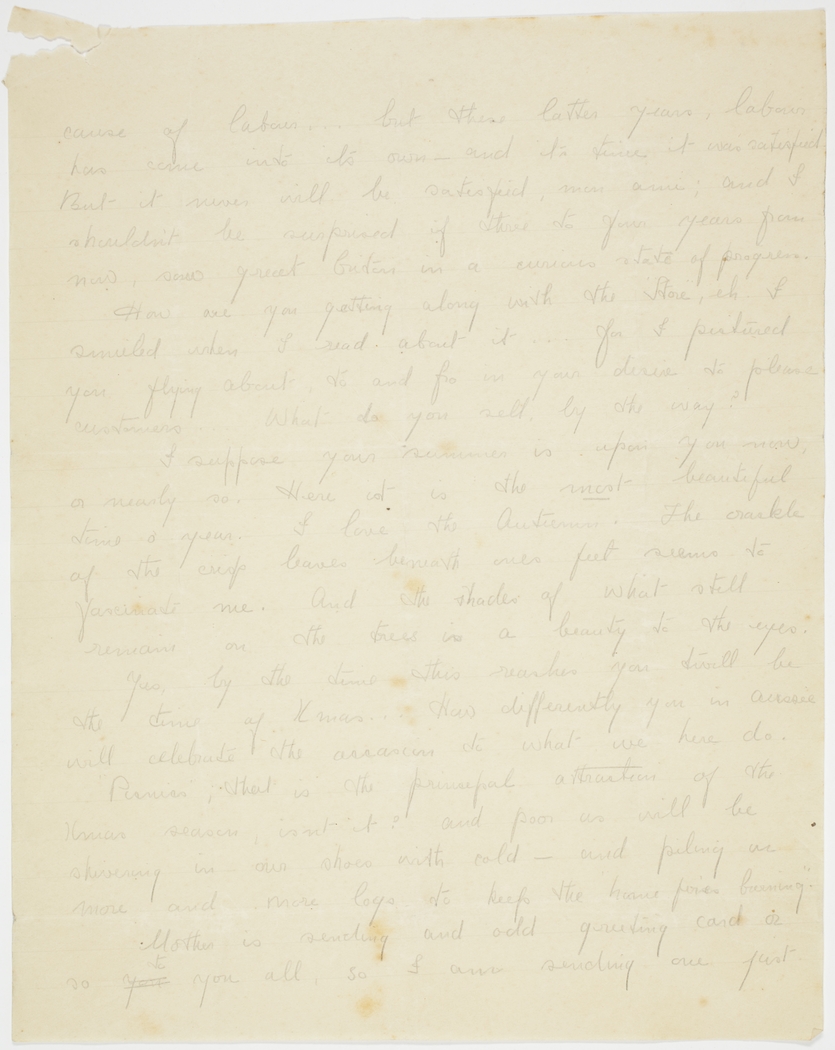 cause of labour... but these latter years, labour
has come into its own — and its time it was satisfied
But it never will be satisfied, mon ami; and I
shouldn't be surprised if three to four years from
now, saw great Britain in a curious state of progress.
How are you getting along with the Store, eh. I
smiled when I read about it... for I pictured
you flying about, to and fro in your desire to please
customers.... What do you sell, by the way?
I suppose your summer is upon you now,
or nearly so. Here it is the most beautiful
time o year. I love the Autumn. The crackle
of the crisp leaves beneath ones feet seems to
fascinate me. And the shades of what still
remains on the trees is a beauty to the eyes.
Yes, by the time this reaches you twill be
the time of Xmas... How differently you in aussie
will celebrate the occasion to what we here do.
Picnics; that is the principal attraction of the
Xmas season, isnt it? and poor us will be
shivering in our shoes with cold — and piling on
more and more logs to keep the "home fires burning".
Mother is sending and odd greeting card or
so to you all, so I am sending one just